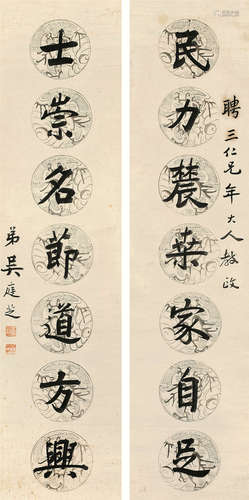 聘三仁兄年大人教政
民力農桒家自足
士崇名節道方興
弟吳庭芝